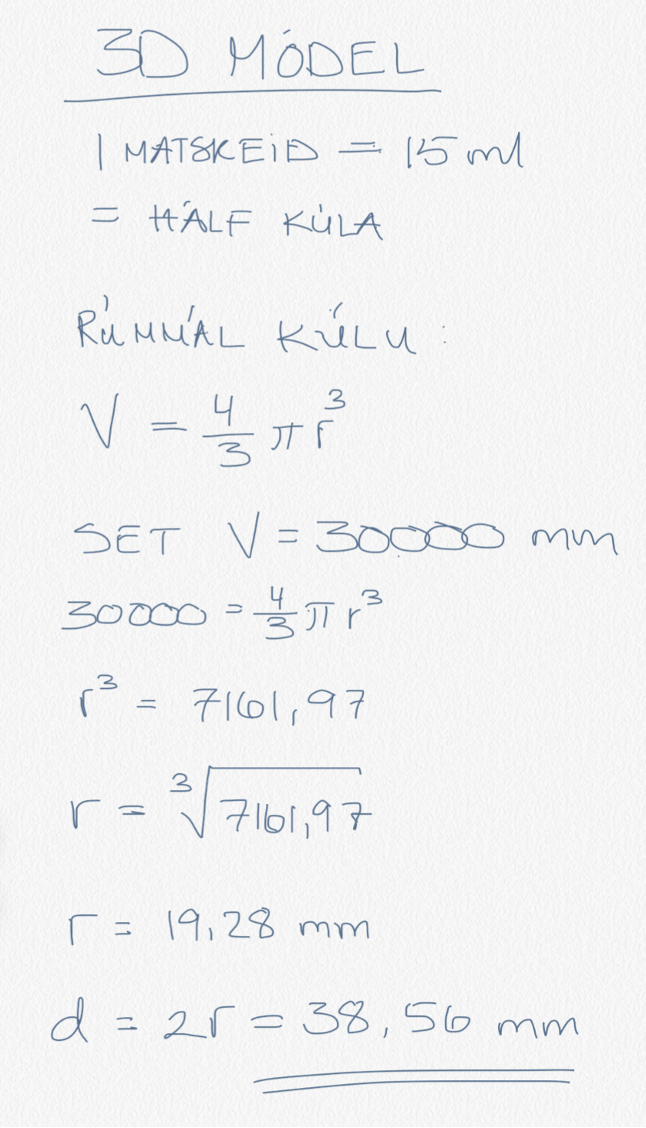 3D MÓDEL
1 MATSKEIÐ = 15 ml
= HÁLF KÚLA
RÚMMÁL KÚLU :
V = 4/3 π r³
SET V = 30000 mm
30000 = 4/3 π r³
r³ = 7161,97
r = ³√7161,97
r = 19,28 mm
d = 2r = 38,56 mm